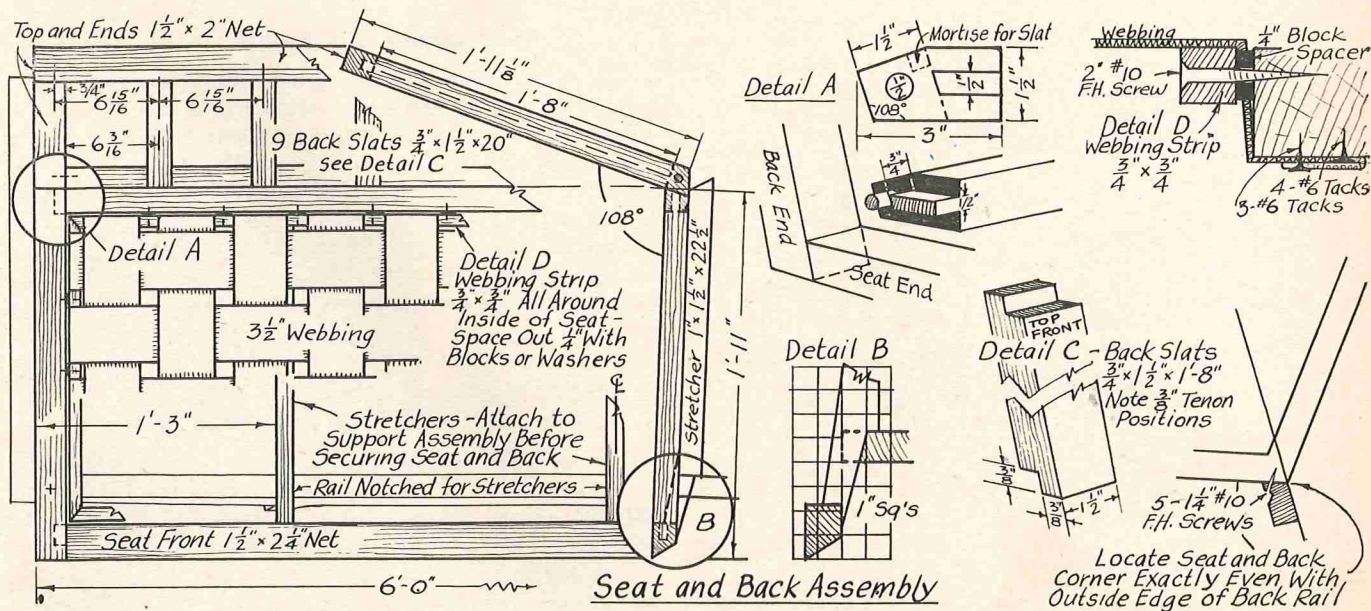 Top and Ends 1 1/2" x 2" Net
3/4"
6 15/16 6 15/16
6 3/16
9 Back Slats 3/4" x 1 1/2" x 20"
see Detail C
1'-11 1/8"
1'-8"
108°
Detail A
Detail D
Webbing Strip
3/4" x 3/4" All Around
Inside of Seat-
Space Out 1/4" With
Blocks or Washers
3 1/2" Webbing
Stretcher 1" x 1 1/2" x 22 1/2"
1'-11"
1'-3"
Stretchers - Attach to
Support Assembly Before
Securing Seat and Back
Rail Notched for Stretchers
B
Seat Front 1 1/2" x 2 1/4" Net
6'-0"
Seat and Back Assembly
Detail A
1 1/2"
Mortise for Slat
1 1/2
108°
1/2"
1 1/2"
3"
3/4"
1/2"
Back End
Seat End
Detail B
1" Sq's
Webbing
1/4" Block
Spacer
2" #10
F.H. Screw
Detail D
Webbing Strip
3/4 x 3/4
4-#6 Tacks
3-#6 Tacks
TOP
FRONT
Detail C - Back Slats
3/4" x 1 1/2" x 1'-8"
Note 3/8" Tenon
Positions
3/8"
3/8"
1 1/2"
5-1 1/4" #10
F.H. Screws
Locate Seat and Back
Corner Exactly Even With
Outside Edge of Back Rail